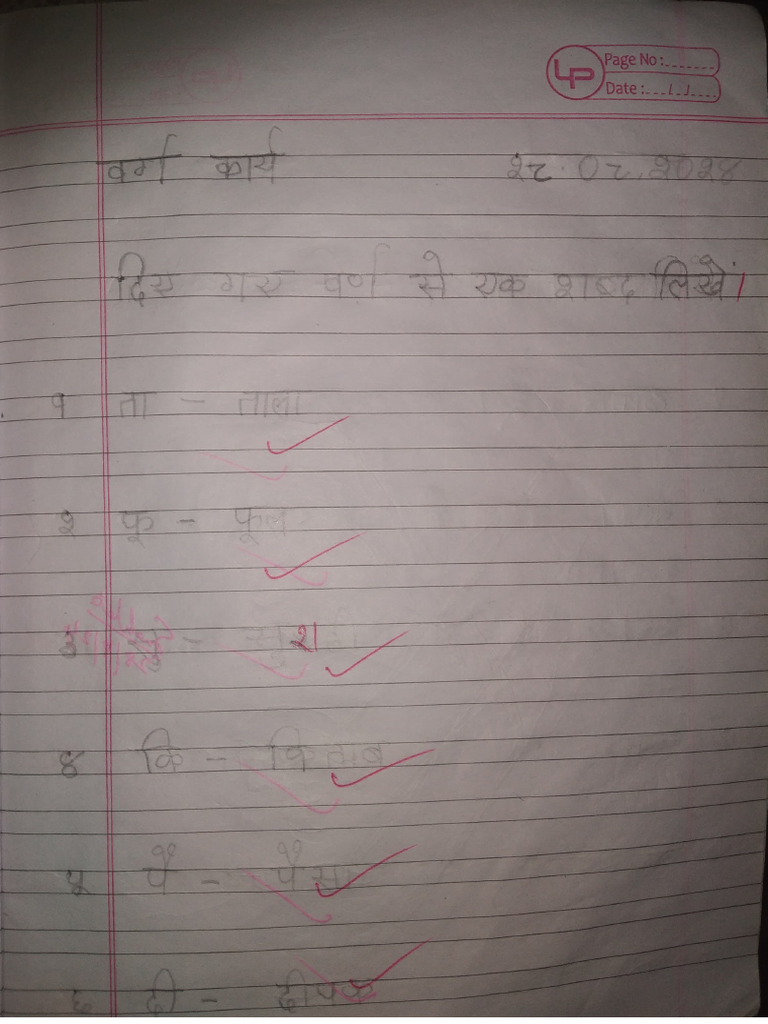 Page No :.......
Date :.../../....
वर्ग कार्य २८.०८.२०२४
दिए गए वर्ण से एक शब्द लिखें।
१ ता - ताला
२ फू - फूल
३ खु - श
४ कि - किताब
५ पै - पैसा
६ दी - दीपक